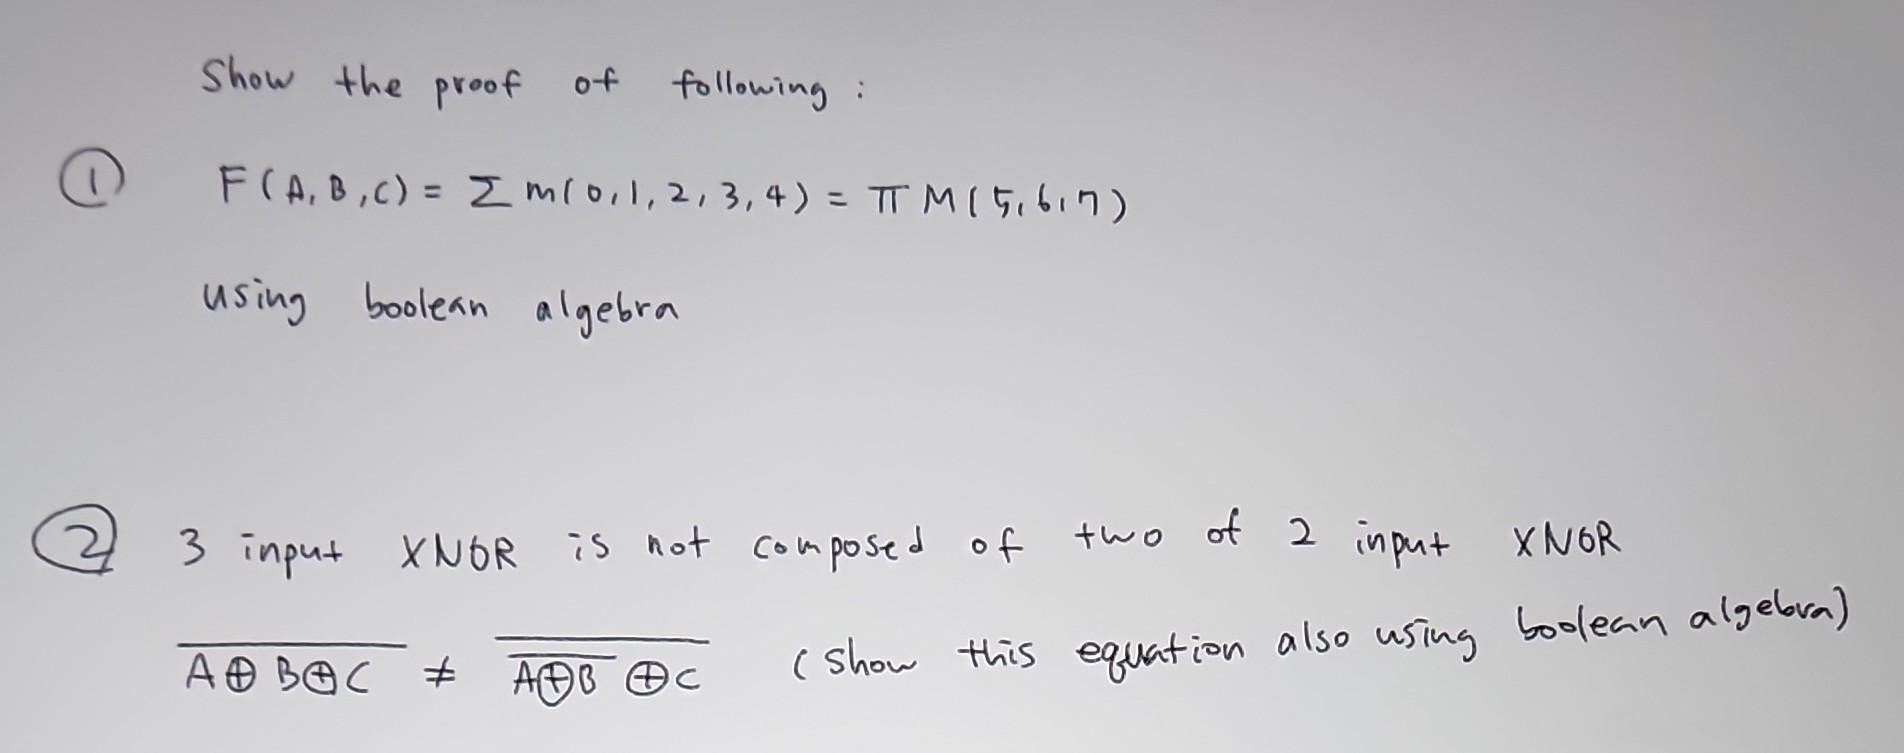 Show the proof of following :
① F(A,B,C) = Σ m(0,1,2,3,4) = π M(5,6,7)
using boolean algebra
② 3 input XNOR is not composed of two of 2 input XNOR
$\overline{A \oplus B \oplus C} \neq \overline{\overline{A \oplus B} \oplus C}$ (show this equation also using boolean algebra)